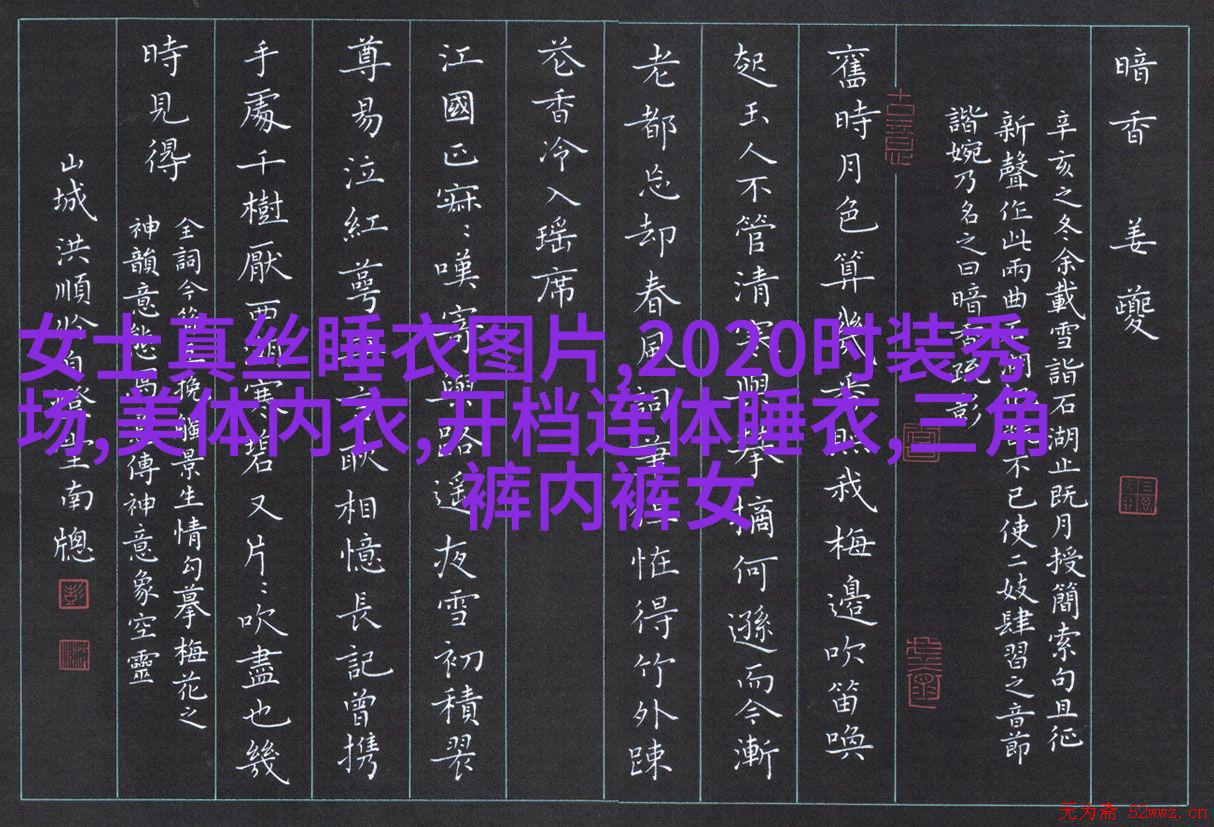 暗香 姜夔
辛亥之冬余載雪詣石湖止既月授簡索句且征
新聲作此兩曲不已使二妓肆習之音節
諧婉乃名之曰暗香疏影
古意
舊時月色算幾番照我梅邊吹笛喚
起玉人不管清寒與攀摘何遜而今漸
老都忘却春風詞筆怪得竹外疎
花香冷入瑶席
江國正寂：嘆寄與路遥夜雪初積翠
尊易泣紅萼無言耿相憶長記曾携
手處千樹厭西湖寒碧又片：吹盡也幾
時見得
全詞今觸景生情勾摹梅花之
神韻意態傳神意象空靈
山城洪順南牕
女士真丝睡衣图片,2020时装秀
场,美体内衣,开档连体睡衣,三角
裤内裤女
无为斋 52wwz.cn